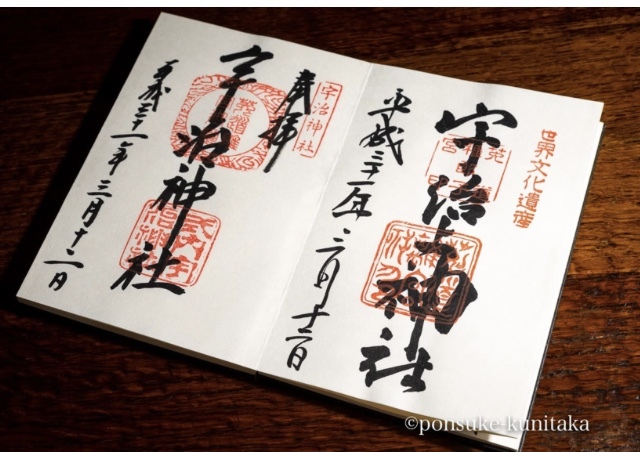 世界文化遺産
宇治上神社
平成三十一年三月十二日
宇治神社
奉拝
宇治神社
平成三十一年三月十二日
©ponsuke-kunitaka